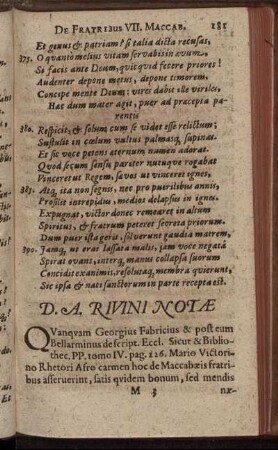 DE FRATRIBUS VII. MACCAB. 181
Et genus & patriam? si talia dicta recusas,
375. O quanto melius vitam servabis in ævum,
Si facis ante Deum, quicquid fecere priores!
Audenter depone metus, depone timorem,
Concipe mente Deum: vires dabit ille viriles,
Hæc dum mater agit, puer ad præcepta parentis
380. Respicit, & solum cum se videt esse relictum;
Sustulit in cœlum vultus palmasq; supinas.
Et sic voce petens æternum numen adorat.
Quod secum sensu pariter nutuque rogabat
Vinceret ut Regem, sævos ut vinceret ignes.
385. Atq; ita non segnis, nec pro puerilibus annis,
Prosilit intrepidus, medios delapsus in ignes.
Expugnat, victor donec remearet in altum
Spiritus, & fratrum peteret secreta priorum.
Dum puer ista gerit, solverunt gaudia matrem,
390. Jamq; ut erat lassata malis, jam voce negatâ
Spirat ovans, interq; manus collapsa suorum
Concidit exanimis, resolutaq; membra quierunt,
Sic ipsa & nati sanctorum in parte recepta est.
D. A. RIVINI NOTÆ
QVanqvam Georgius Fabricius & post eum
Bellarminus de script. Eccl. Sicut & Bibliothec.
PP. tomo IV. pag. 126. Mario Victorino
Rhetori Afro carmen hoc de Maccabæis fratribus
asseruerint, satis qvidem bonum, sed mendis
M 3 nx-